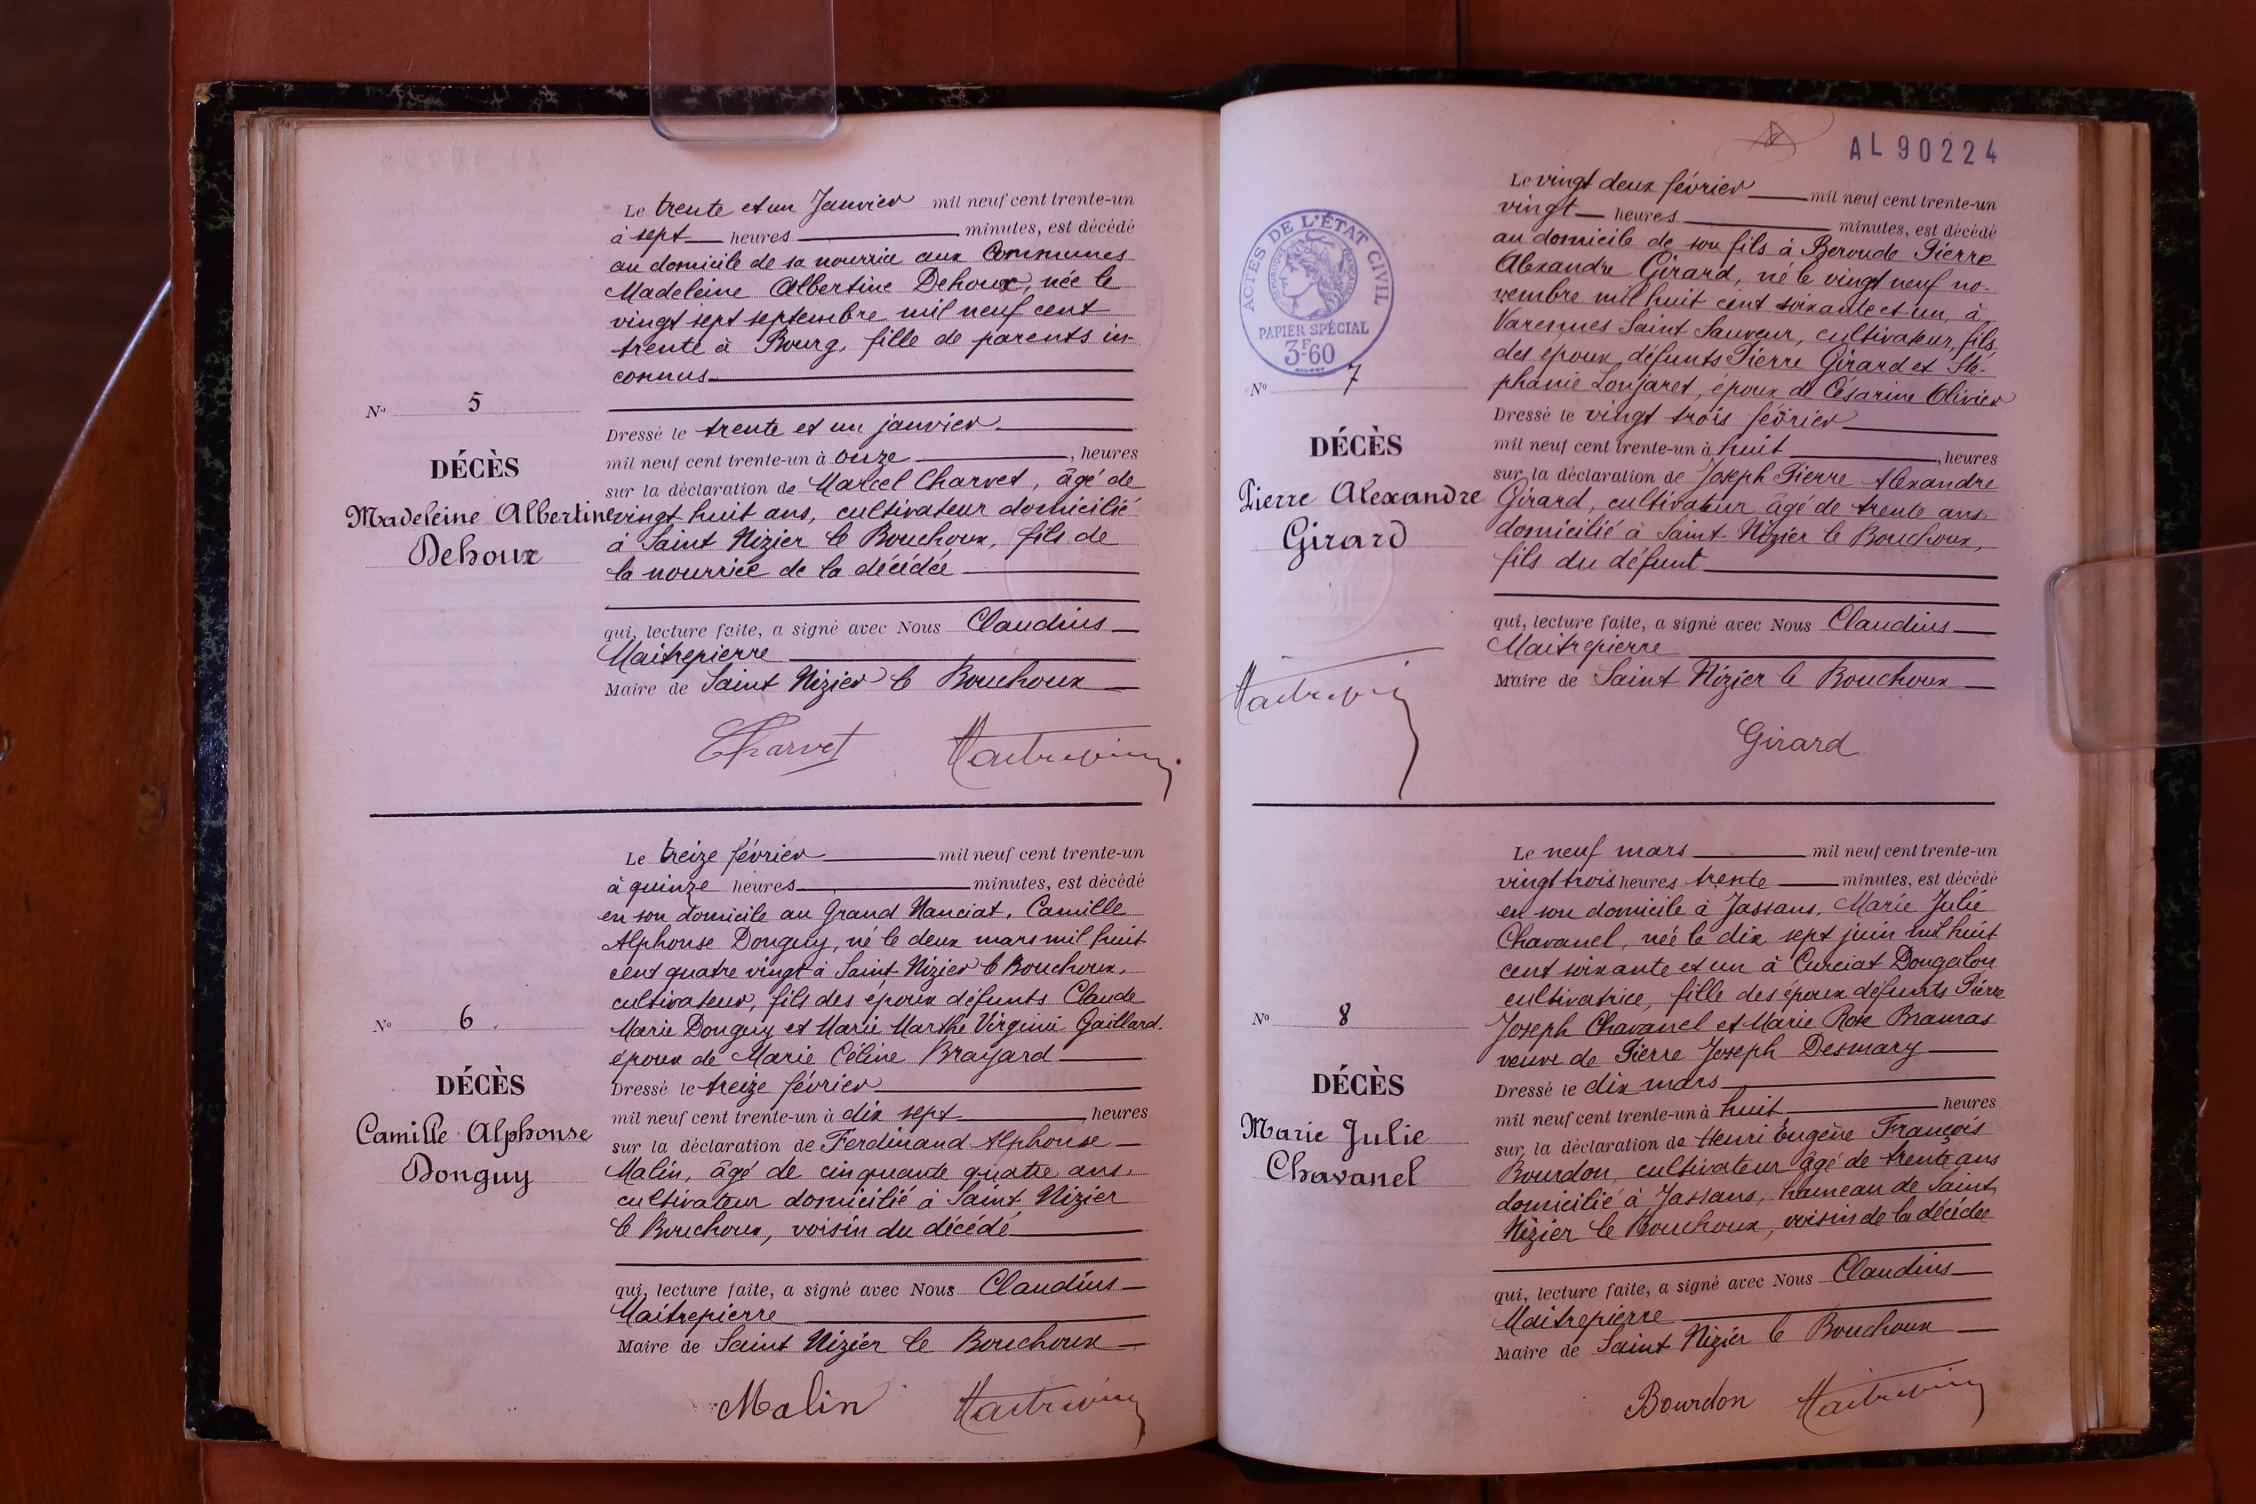 Le trente et un Janvier mil neuf cent trente-un
à sept heures minutes, est décédé
au domicile de sa nourrice aux Communes
Madeleine Albertine Dehoux, née le
vingt sept septembre mil neuf cent
trente à Bourg, fille de parents in-
connus
N° 5
Dressé le trente et un janvier
mil neuf cent trente-un à onze, heures
DÉCÈS
sur la déclaration de Marcel Charvet, âgé de
Madeleine Albertine
vingt huit ans, cultivateur domicilié
Dehoux
à Saint Nizier le Bouchoux, fils de
la nourrice de la décédée
qui, lecture faite, a signé avec Nous Claudius
Maitrepierre
Maire de Saint Nizier le Bouchoux
Charvet
Le treize février mil neuf cent trente-un
à quinze heures minutes, est décédé
en son domicile au Grand Nanciat, Camille
Alphonse Donguy, né le deux mars mil huit
cent quatre vingt à Saint Nizier le Bouchoux,
cultivateur, fils des époux défunts Claude
N° 6
Marie Donguy et Marie Marthe Virginie Gaillard.
époux de Marie Céline Brayard
DÉCÈS
Dressé le treize février
mil neuf cent trente-un à dix sept, heures
Camille Alphonse
Donguy
sur la déclaration de Ferdinand Alphonse
Malin, âgé de cinquante quatre ans,
cultivateur domicilié à Saint Nizier
le Bouchoux, voisin du décédé
qui, lecture faite, a signé avec Nous Claudius
Maitrepierre
Maire de Saint Nizier le Bouchoux
Malin
AL 90224
ACTES DE L'ÉTAT CIVIL
PAPIER SPÉCIAL
3F60
Le vingt deux février mil neuf cent trente-un
vingt heures minutes, est décédé
au domicile de son fils à Beroude Pierre
Alexandre Girard, né le vingt neuf no-
vembre mil huit cent soixante et un, à
Varennes Saint Sauveur, cultivateur, fils
des époux défunts Pierre Girard et Sté-
N° 7
phanie Lonjaret, époux de Césarine Olivier
Dressé le vingt trois février
DÉCÈS
mil neuf cent trente-un à huit, heures
Pierre Alexandre
Girard
sur la déclaration de Joseph Pierre Alexandre
Girard, cultivateur âgé de trente ans,
domicilié à Saint-Nizier le Bouchoux,
fils du défunt
qui, lecture faite, a signé avec Nous Claudius
Maitrepierre
Maire de Saint Nizier le Bouchoux
Girard
Le neuf mars mil neuf cent trente-un
vingt trois heures trente minutes, est décédé
en son domicile à Jassans, Marie Julie
Chavanel, née le dix sept juin mil huit
cent soixante et un à Curciat Dongalon
cultivatrice, fille des époux défunts Pierre
N° 8
Joseph Chavanel et Marie Rose Bramas
veuve de Pierre Joseph Desmary
DÉCÈS
Dressé le dix mars
mil neuf cent trente-un à huit heures
Marie Julie
Chavanel
sur la déclaration de Henri Eugène François
Bourdon, cultivateur âgé de trente ans
domicilié à Jassans, hameau de Saint
Nizier le Bouchoux, voisin de la décédée
qui, lecture faite, a signé avec Nous Claudius
Maitrepierre
Maire de Saint Nizier le Bouchoux
Bourdon